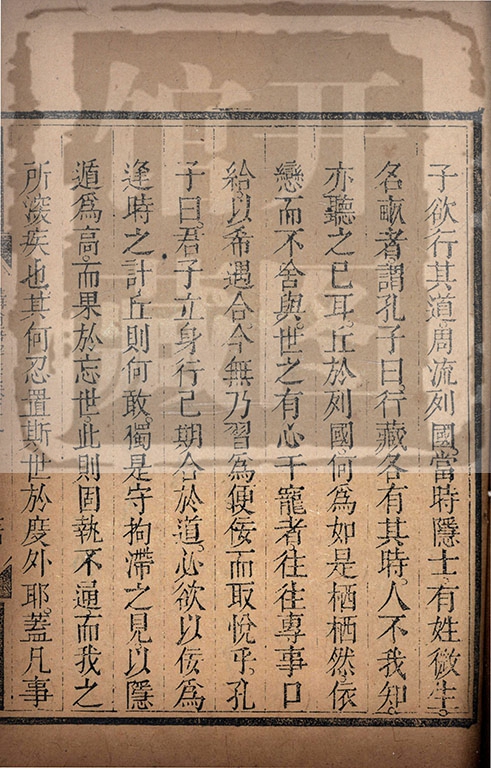 子欲行其道。周流列國。當時隱士有姓微生。
名畝者謂孔子曰。行藏各有其時。人不我知。
亦聽之已耳。丘於列國。何為如是栖栖然。依
戀而不舍與。世之有心干寵者。往往專事口
給。以希遇合。今無乃習為便佞而取悅乎。孔
子曰。君子立身行己。期合於道。心欲以佞為
逢時之計。丘則何敢。獨是守拘滯之見。以隱
遁為高。而果於忘世。此則固執不通。而我之
所深疾也。其何忍置斯世於度外耶。蓋凡事